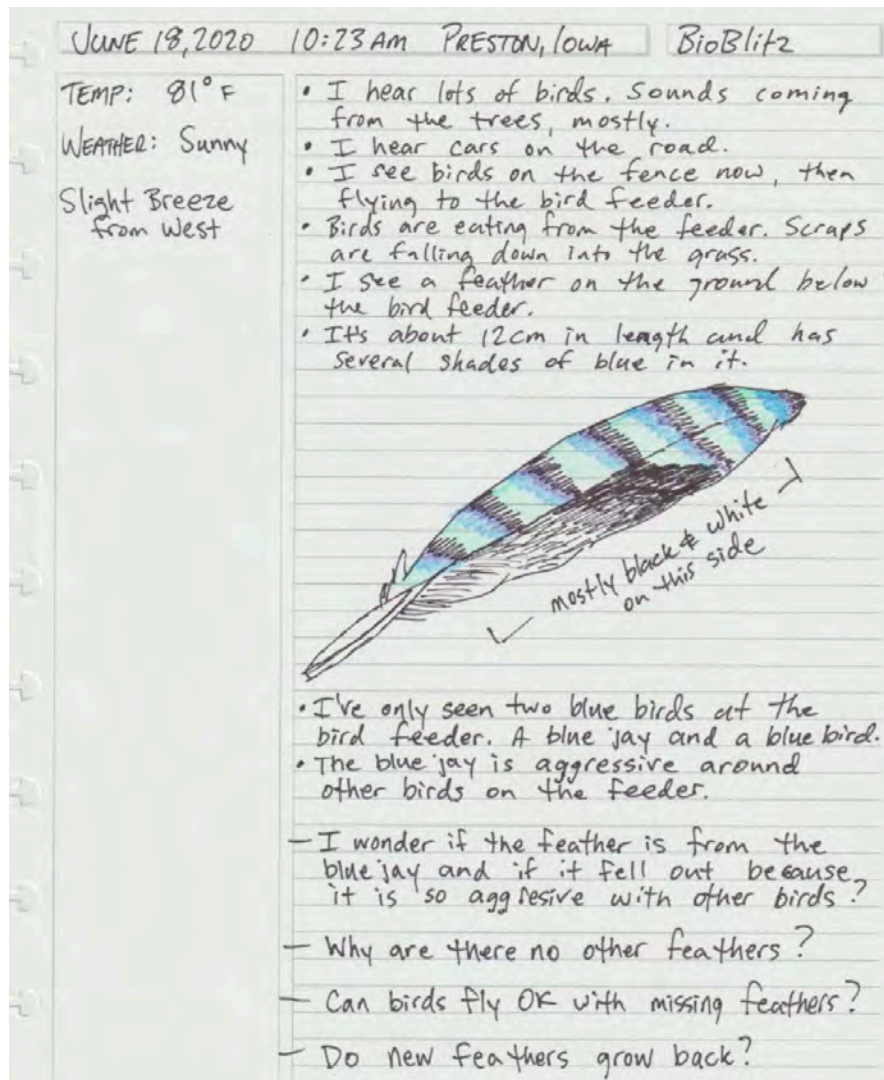 JUNE 18, 2020 10:23 AM PRESTON, IOWA BioBlitz
TEMP: 81° F
WEATHER: Sunny
Slight Breeze
from West
• I hear lots of birds. Sounds coming
from the trees, mostly.
• I hear cars on the road.
• I see birds on the fence now, then
flying to the bird feeder.
• Birds are eating from the feeder. Scraps
are falling down into the grass.
• I see a feather on the ground below
the bird feeder.
• It's about 12cm in length and has
several shades of blue in it.
mostly black & white
on this side
• I've only seen two blue birds at the
bird feeder. A blue jay and a blue bird.
• The blue jay is aggressive around
other birds on the feeder.
— I wonder if the feather is from the
blue jay and if it fell out because
it is so aggresive with other birds?
— Why are there no other feathers?
— Can birds fly OK with missing feathers?
— Do new feathers grow back?